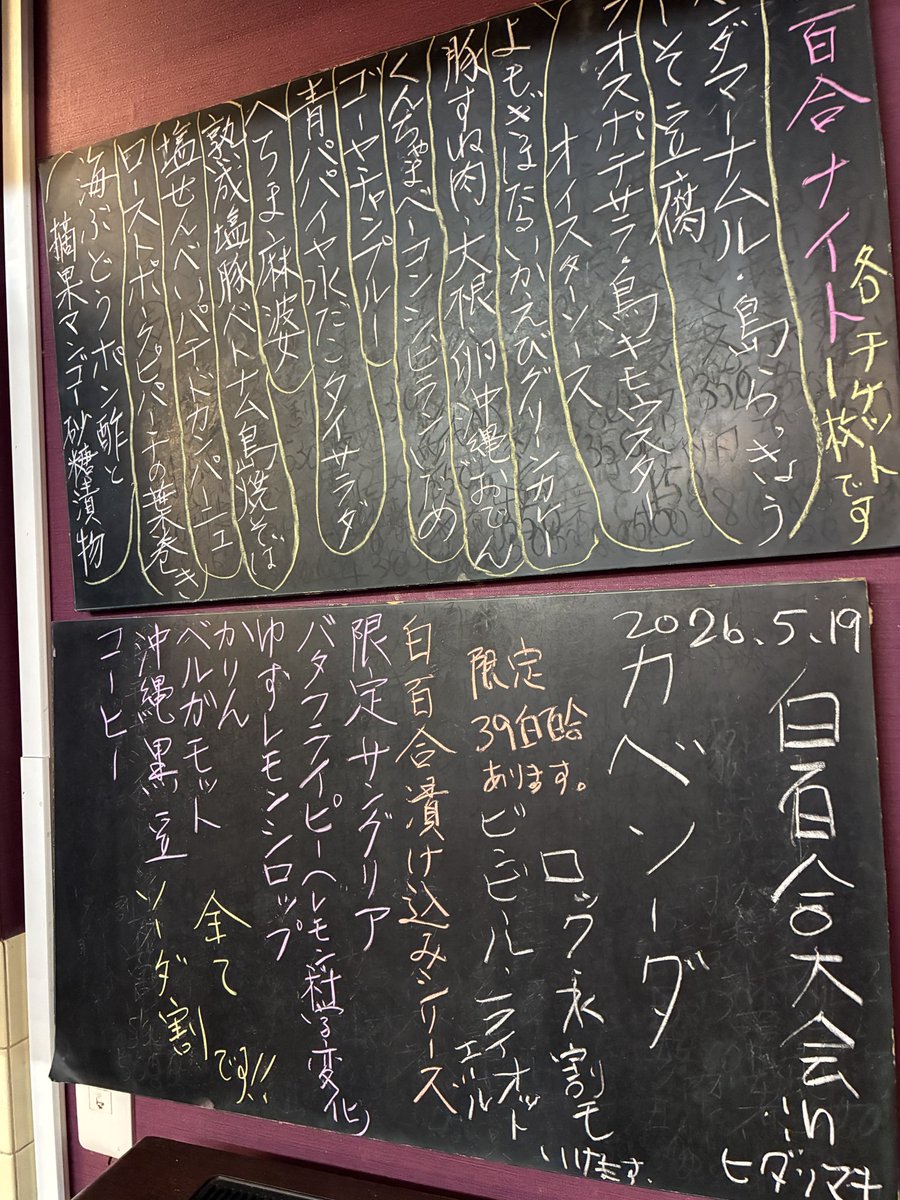 百合ナイト
各チケット1枚です
ンダマーナムル・島らっきょう
そ豆腐
オスポテサラ・鳥キモウスター
オイスターソース
よもぎほたるいかえびグリーンカレー
豚すね肉・大根・卵沖縄おでん
くんちゃまベーコンジビランいため
ゴーヤチャンプルー
青パパイヤ水だこタイサラダ
へちま麻婆
熟成塩豚ベトナム島焼そば
塩せんべいパテドカンパーニュ
ローストポークピパーチの葉巻き
海ぶどうポン酢と
摘果マンゴー砂糖漬物
2026.5.19
白百合大会in
ヒダリマキ
カベンーダ
ロック水割モ
いけます。
限定
39白百合
あります。
ビビビール・ライオット
エール
白百合漬け込みシリーズ
限定サングリア
バタフライピーヘレモン
変化)
ゆずレモンシロップ
かりん
ベルガモット
沖縄黒豆
コーヒー
全て
ソーダ割
です!!